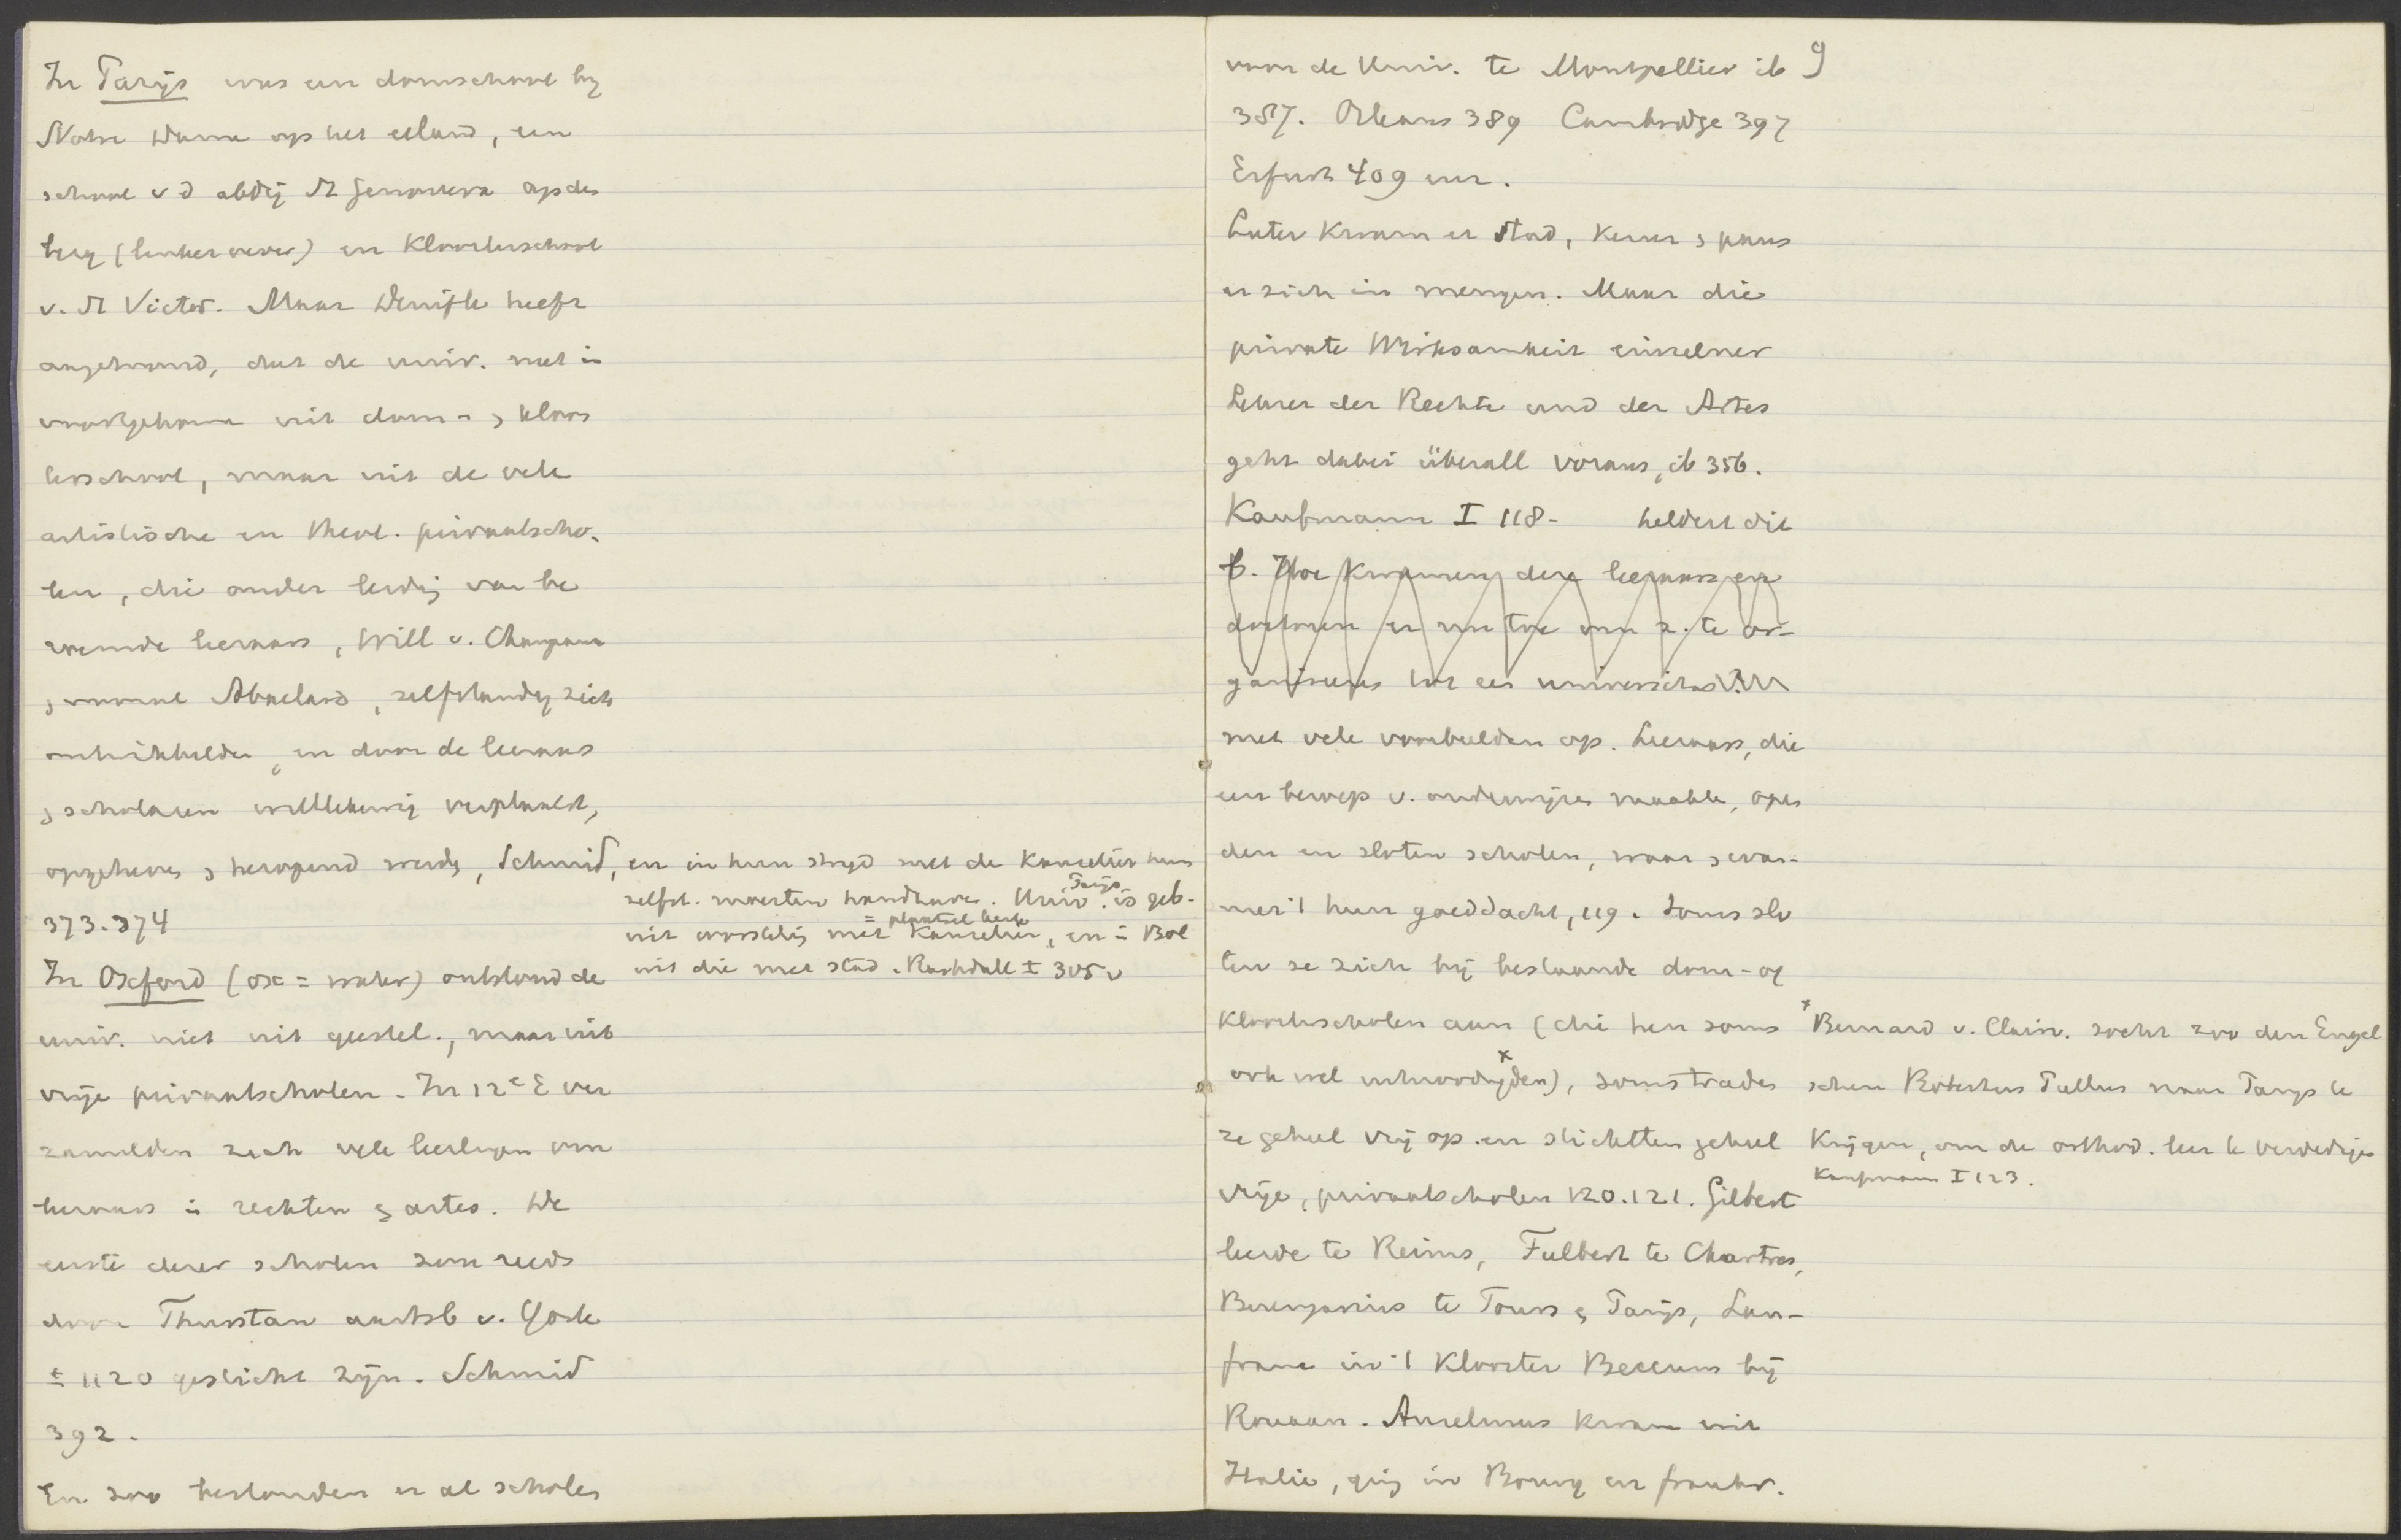 In Parijs was een domschool bij
Notre Dame op het eiland, een
school v d abdij St Genoveva op den
berg (linker oever) en Kloosterschool
v. St Victor. Maar Denifle heeft
aangetoond, dat de univ. niet is
voortgekomen uit dom- en kloos
terschool, maar uit de vele
artistische en theol. privaatscho-
len, die onder leiding van be
roemde leeraars, Will v. Champeaux
en vooral Abaelard, zelfstandig zich
ontwikkelden, en door de leeraars
en scholaren willekeurig verplaatst,
opgeheven en heropend werden, Schmid,
373.374
en in hun strijd met de kanselier hun
zelfst. moesten handhaven. Univ. Parijs is geb.
uit worsteling met kanselier = plaatsel. kerk, en in Bol
uit die met stad. Rashdall I 305 v
In Oxford (ox = water) ontstond de
univ. niet uit geestel., maar uit
vrije privaatscholen. In 12e E ver
zamelden zich vele leerlingen om
leeraars in rechten en artes. De
eerste dezer scholen zou reeds
door Thurstan aartsb v. York
± 1120 gesticht zijn. Schmid
392.
En zoo bestonden er al scholen
9
voor de Univ. te Montpellier ib
387. Orleans 389 Cambridge 397
Erfurt 409 enz.
Later kwam er stad, keizer en paus
er zich in mengen. Maar die
private Wirksamkeit einzelner
Lehrer der Rechte und der Artes
geht dabei überall voraus, ib 356.
Kaufmann I 118- heldert dit
b. Hoe kwamen deze leeraars en
doctoren er nu toe om z. te or-
ganiseeren tot een universitas?
met vele voorbeelden op. Leeraars, die
een beroep v. onderwijzen maakten, open
den en sloten scholen, waar en wan-
neer 't hun goeddacht, 119. Soms slo
ten ze zich bij bestaande dom- of
kloosterscholen aan (die hen soms
ook wel uitnoodigden)x, soms traden
ze geheel vrij op en stichtten geheel
vrije, privaatscholen 120.121. Gilbert
x Bernard v. Clairv. zocht zoo den Engel
schen Robertus Pullus naar Parijs te
krijgen, om de orthod. leer te verdedigen
Kaufmann I 123.
leerde te Reims, Fulbert te Chartres,
Berengarius te Tours en Parijs, Lan-
franc in 't Klooster Beccum bij
Rouaan. Anselmus kwam uit
Italie, ging in Bourg en frankr.